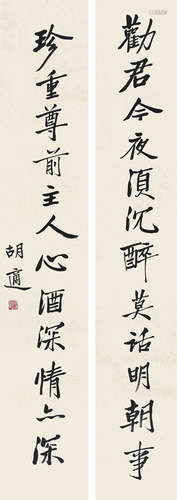 勸君今夜須沉醉莫話明朝事
珍重尊前主人心酒深情亦深
胡適